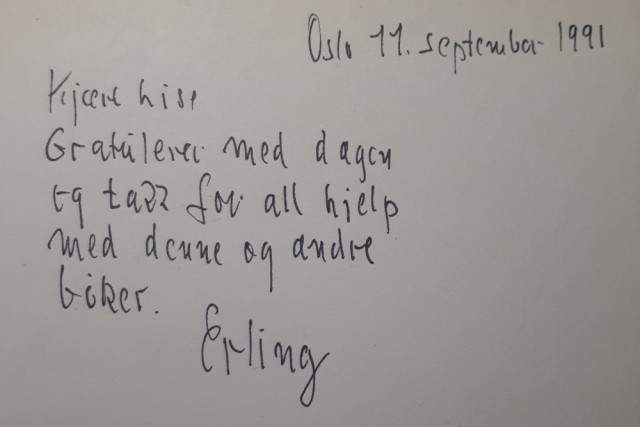 Oslo 11. september 1991
Kjære Lise
Gratulerer med dagen
og takk for all hjelp
med denne og andre
bøker.
Erling